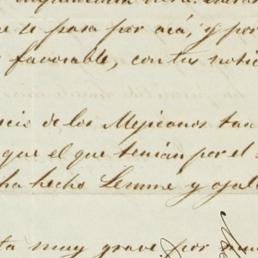 se pasa por acá, y por
favorable, con tus notic
cio de los Mejicanos tan
que el que tenian por el
ha hecho Lemme y ojal
ta muy grave por